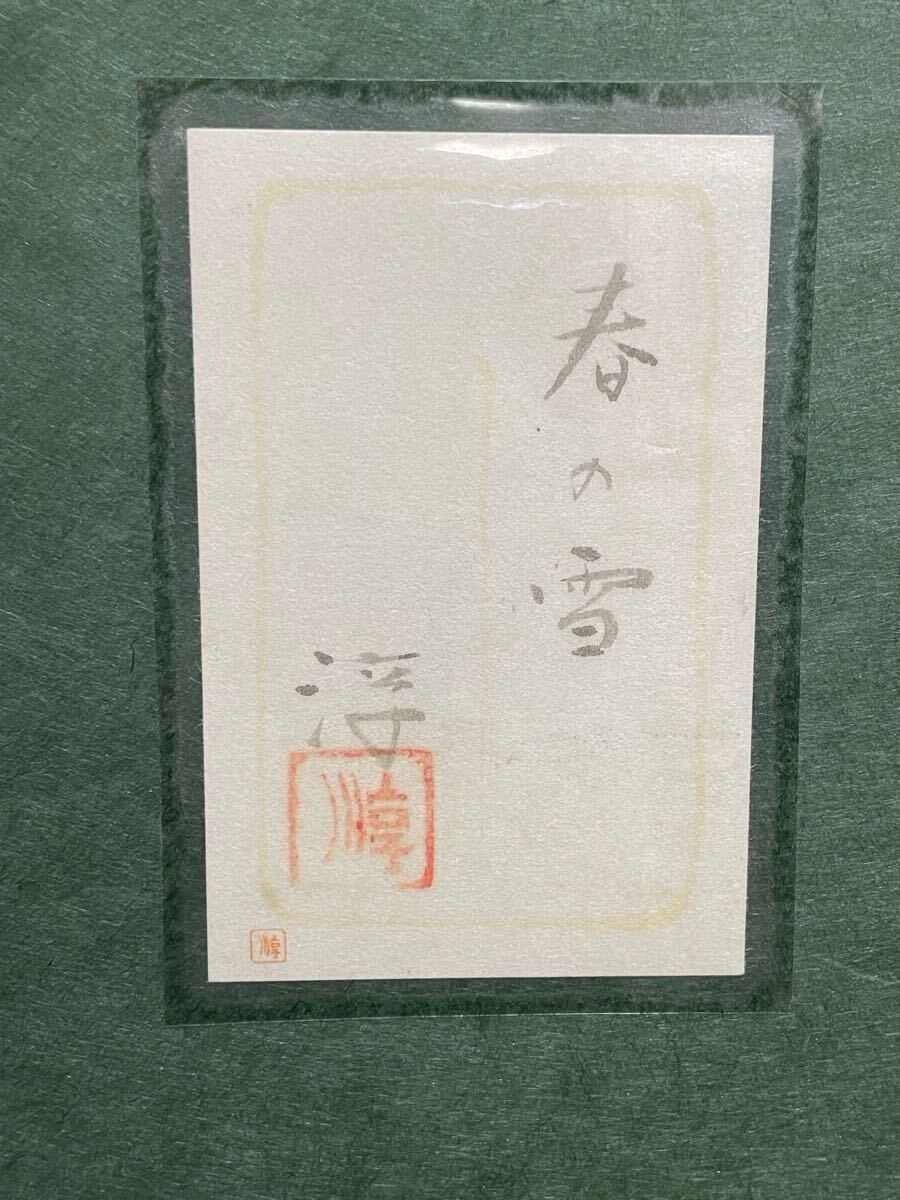 春の雪
淳
淳
淳